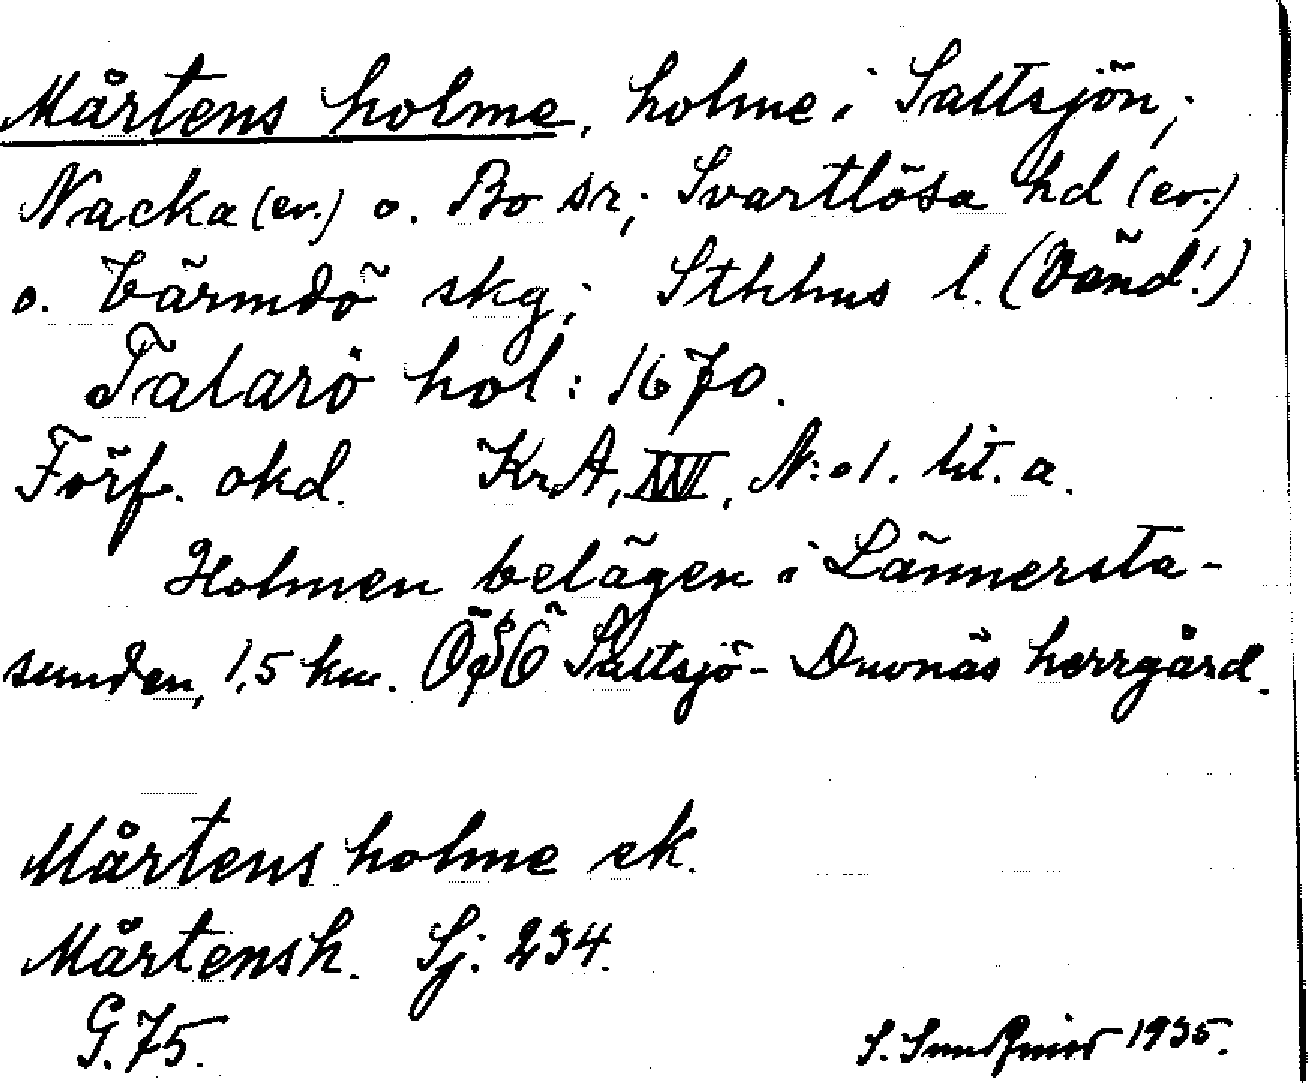 Mårtens holme, holme i Saltsjön,
Nacka (ev.) o. Bo sr; Svartlösa hd (ev.)
o. Värmdö skg; Sthlms l. (Vänd!)
Talarö hol: 1670.
Förf. okd. KrA, XVI, N:o 1. lit. a.
Holmen belägen i Lännersta-
sunden, 1,5 km. ÖSÖ Saltsjö-Duvnäs herrgård.
Mårtens holme ek.
Mårtensh. Sj: 234.
G. 75.
S. 1935.